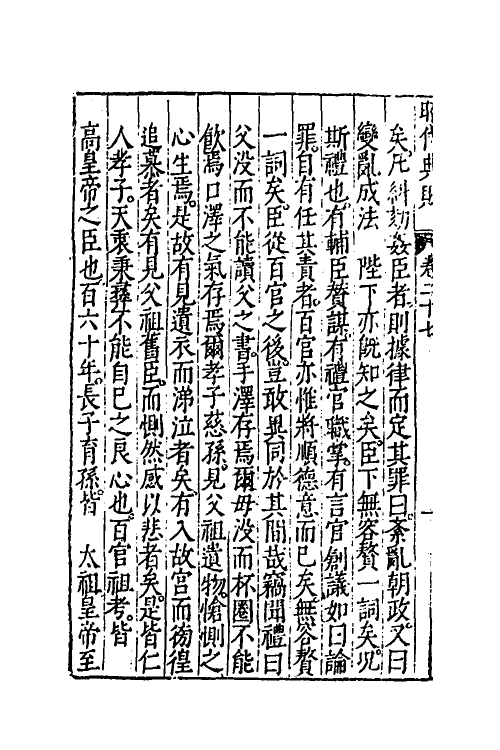 昭代典則 卷二十七
矣凡糾劾姦臣者則據律而定其罪曰紊亂朝政又曰
變亂成法 陛下亦既知之矣臣下無容贅一詞矣况
斯禮也有輔臣贊謀有禮官職掌有言官創議如曰論
罪自有任其責者百官亦惟將順德意而已矣無容贅
一詞矣臣從百官之後豈敢異同於其間哉竊聞禮曰
父没而不能讀父之書手澤存焉爾母没而杯圈不能
飲焉口澤之氣存焉爾孝子慈孫見父祖遺物愴惻之
心生焉是故有見遺衣而涕泣者矣有入故宮而徬徨
追慕者矣有見父祖舊臣而惻然感以悲者矣是皆仁
人孝子天衷秉彞不能自已之良心也百官祖考皆
高皇帝之臣也百六十年長子育孫皆 太祖皇帝至